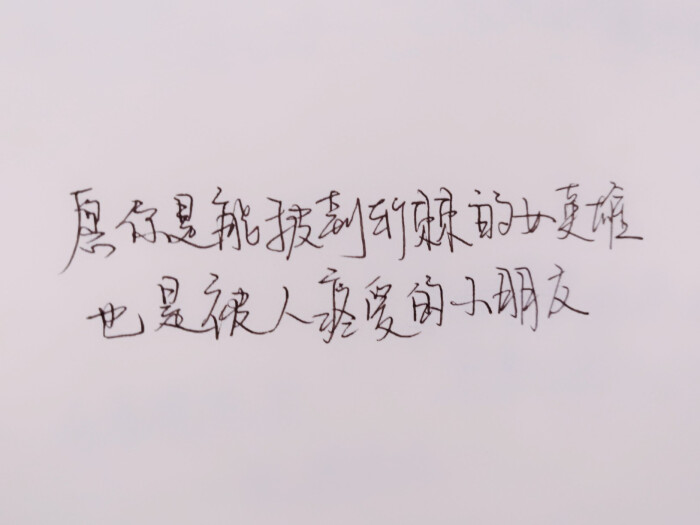 愿你是能披荆斩棘的女英雄
也是被人疼爱的小朋友